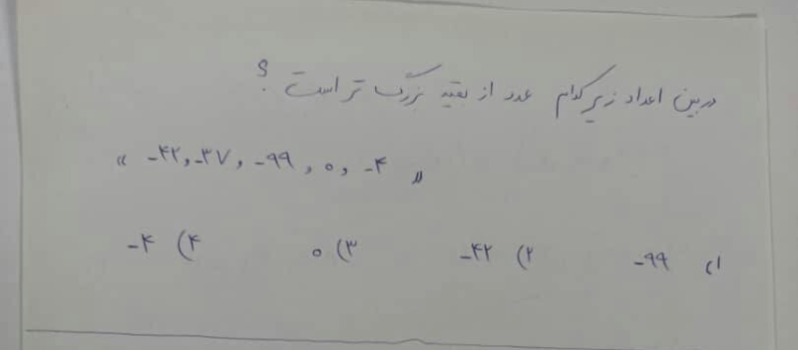 در بین اعداد زیر کدام عدد از بقیه بزرگ تر است ؟
« -۴۲, -۳۷, -۹۹, ۰, -۴ »
۱) -۹۹ ۲) -۴۲ ۳) ۰ ۴) -۴